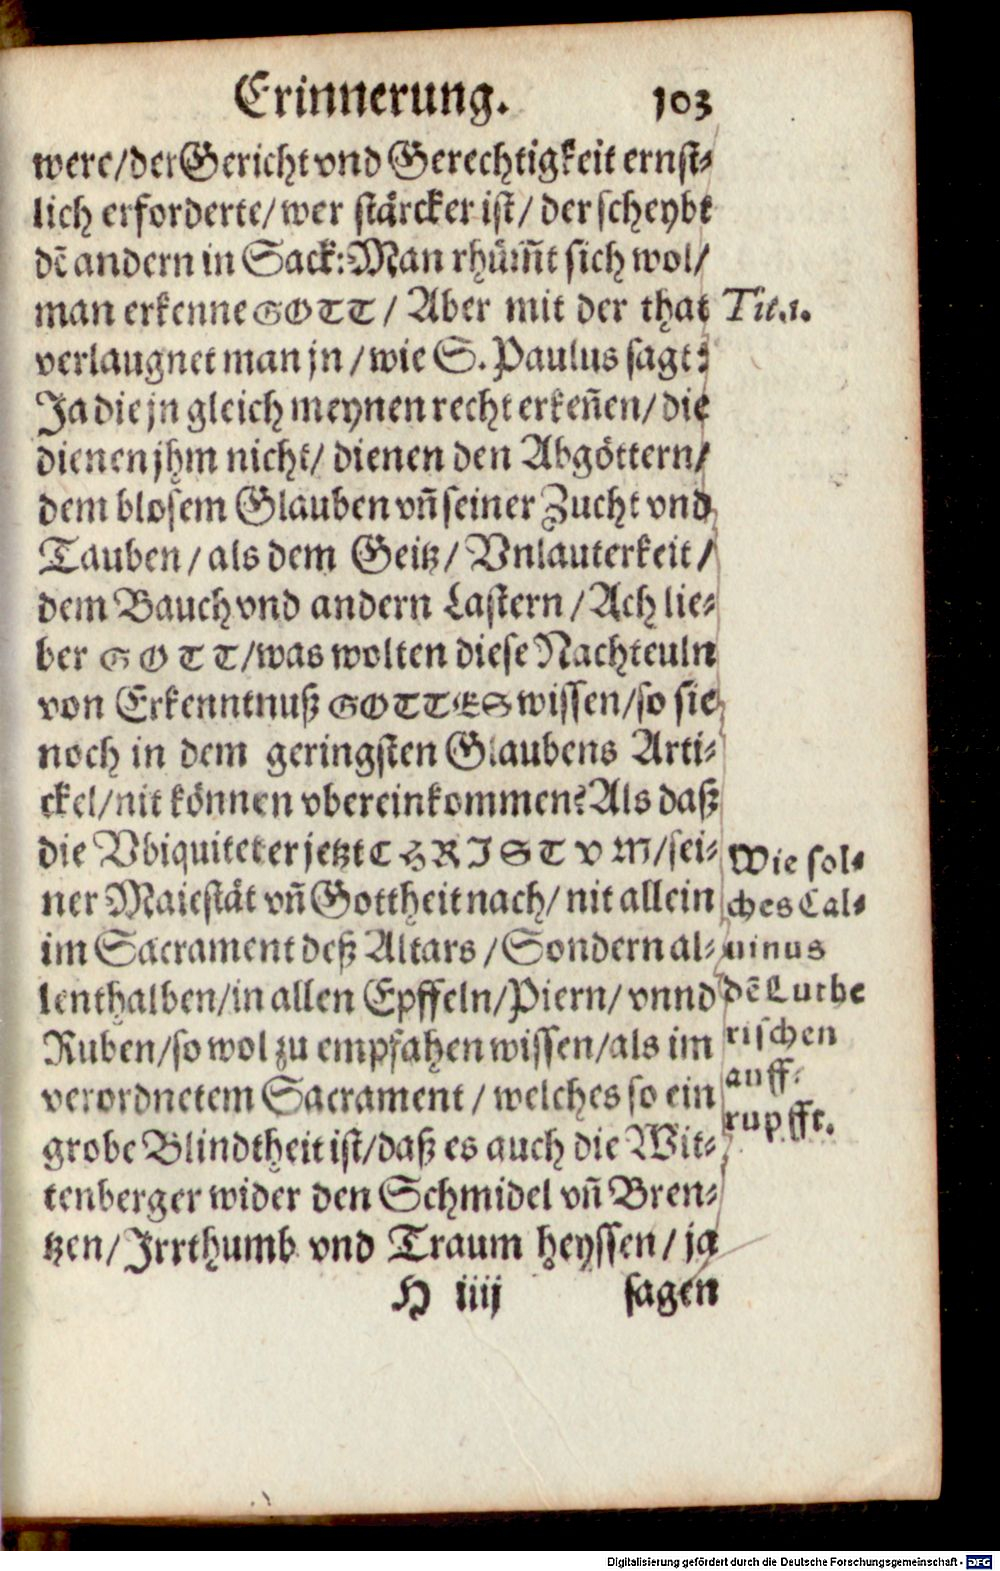 Erinnerung. 103
were/der Gericht vnd Gerechtigkeit ernst-
lich erforderte/wer stärcker ist/ der scheybt
dẽ andern in Sack: Man rhüm̃t sich wol/
man erkenne GOTT/ Aber mit der that
Tit.1.
verlaugnet man jn/wie S. Paulus sagt:
Ja die jn gleich meynen recht erkeñen/ die
dienen jhm nicht/ dienen den Abgöttern/
dem blosem Glauben vñ seiner Zucht vnd
Tauben/als dem Geitz/ Vnlauterkeit/
dem Bauch vnd andern Lastern/Ach lie-
ber GOTT/was wolten diese Nachteuln
von Erkenntnuß GOTTES wissen/so sie
noch in dem geringsten Glaubens Arti-
ckel/nit können vbereinkommen? Als daß
die Vbiquiteter jetzt CHRISTVM/sei-
ner Maiestät vñ Gottheit nach/ nit allein
im Sacrament deß Altars/Sondern al-
lenthalben/in allen Epffeln/Piern/ vnnd
Ruben/so wol zu empfahen wissen/als im
verordnetem Sacrament/ welches so ein
grobe Blindtheit ist/daß es auch die Wit-
tenberger wider den Schmidel vñ Bren-
tzen/Jrrthumb vnd Traum heyssen/ ja
Wie sol-
ches Cal-
uinus
dẽ Luthe
rischen
auff-
rupfft.
H iiij sagen
Digitalisierung gefördert durch die Deutsche Forschungsgemeinschaft - DFG